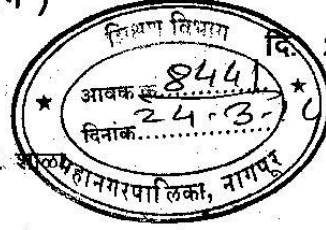 शिक्षण विभाग
दि.
आवक क्र. 8441
दिनांक 24-3-
महानगरपालिका, नागपूर